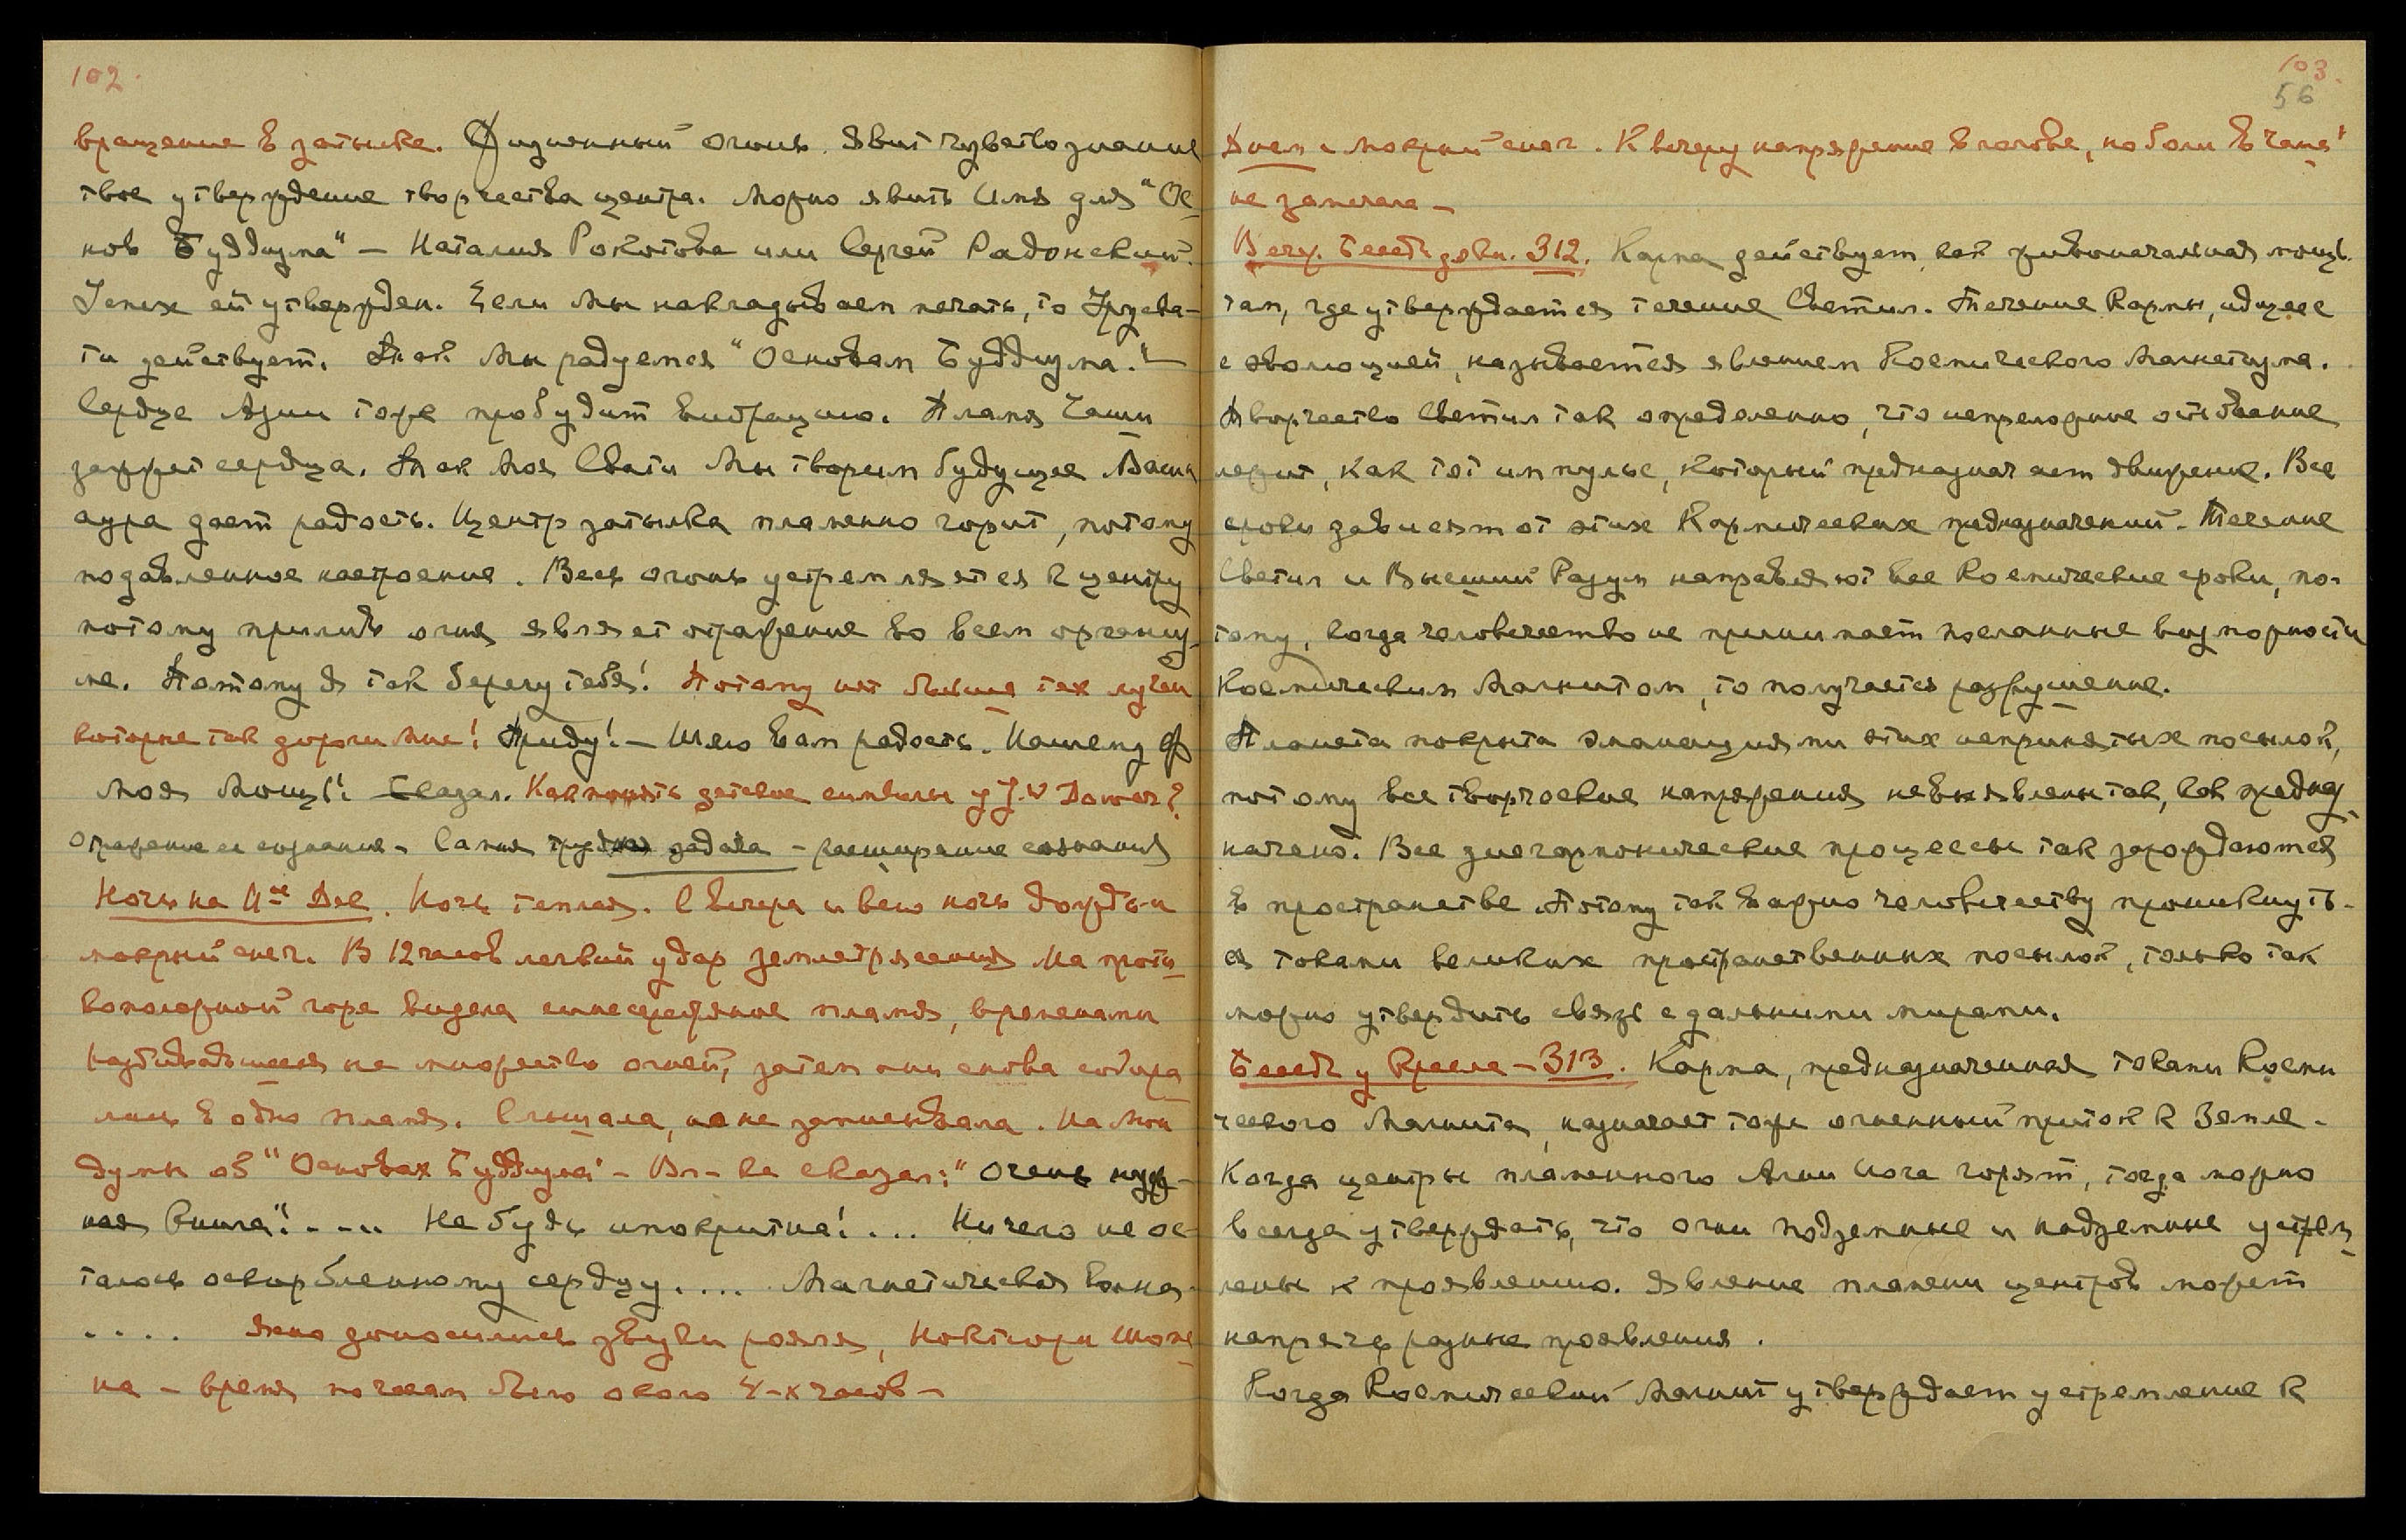 102.
вращение в затылке. Жизненный огонь. Явит чувствознание
твое утверждение творчества центра. Можно явить Имя для "Ос-
нов Буддизма" — Наталия Рокотова или Сергей Радонежский.
Успех ей утвержден. Если Мы накладываем печать, то Урусва-
ти действует. Так Мы радуемся "Основам Буддизма." —
Сердце Азии тоже пробудит вибрацию. Пламя Чаши
зажжет сердца. Так Моя Свати Мы творим будущее. Ваша
аура дает радость. Центр затылка пламенно горит, потому
подавленное настроение. Весь огонь устремляется к центру
потому прилив огня являет отражение во всем организ-
ме. Потому Я так берегу тебя! Потому нет больше тех лучей
которые так дороги мне! Приду! — Шлю Вам радость. Нашему
Моя Мощь! Сказал. Как понять детские символы у J.W
Отражение ее сознания – Самая трудная задача – расширение сознания
Ночь на 11ое Дек. Ночь теплая. С вечера и всю ночь дождь и
мокрый снег. В 12 часов легкий удар землетрясения На проти-
воположной горе видела синесеребряное пламя, временами
разбивавшееся на множество огней, затем они снова собира
лись в одно пламя. Слышала, но не записывала. На мои
думы об "Основах Буддизма" – Вл–ка сказал: "Очень нуж-
ная книга"! .... Не будь ипокритна! ... Ничего не ос-
талось оскорбленному сердцу .... Магнетическая волна.
.... Ясно доносились звуки рояля, Ноктюрн Шопе
на – время по часам было около 4–х часов –
103.
56
Днем мокрый снег. К вечеру напряжение в голове, но боли в "чаше"
не замечала –
Веч. Бесед. 312. Карма действует, как жизненачальная мощь
там, где утверждается течение Светил. Течение Кармы, идущее
с эволюцией, называется явлением Космического Магнетизма.
Творчество Светил так определенно, что непреложные
лежит, как тот импульс, который предназначает движение. Все
сроки зависят от этих Кармических предназначений. Течение
Светил и Высший Разум направляют все Космические сроки, по-
тому, когда человечество не принимает посланные возможности
Космическим Магнитом, то получается разрушение.
Планета покрыта эманациями этих непринятых посылок,
потому все творческие напряжения не выявлены так, как предназ-
начено. Все дисгармонические процессы так зарождаются
в пространстве. Потому так важно человечеству проникнуть-
ся токами великих пространственных посылок, только так
можно утвердить связь с дальними мирами.
Бесед. у Кресла – 313. Карма, предназначенная токами Косми
ческого Магнита, назначает тоже огненный приток к Земле.
Когда центры пламенного Агни Йога горят, тогда можно
всегда утверждать, что огни подземные и надземные устрем-
лены к проявлению. Явление пламени центров может
напрячь разные проявления.
Когда Космический Магнит утверждает устремление к